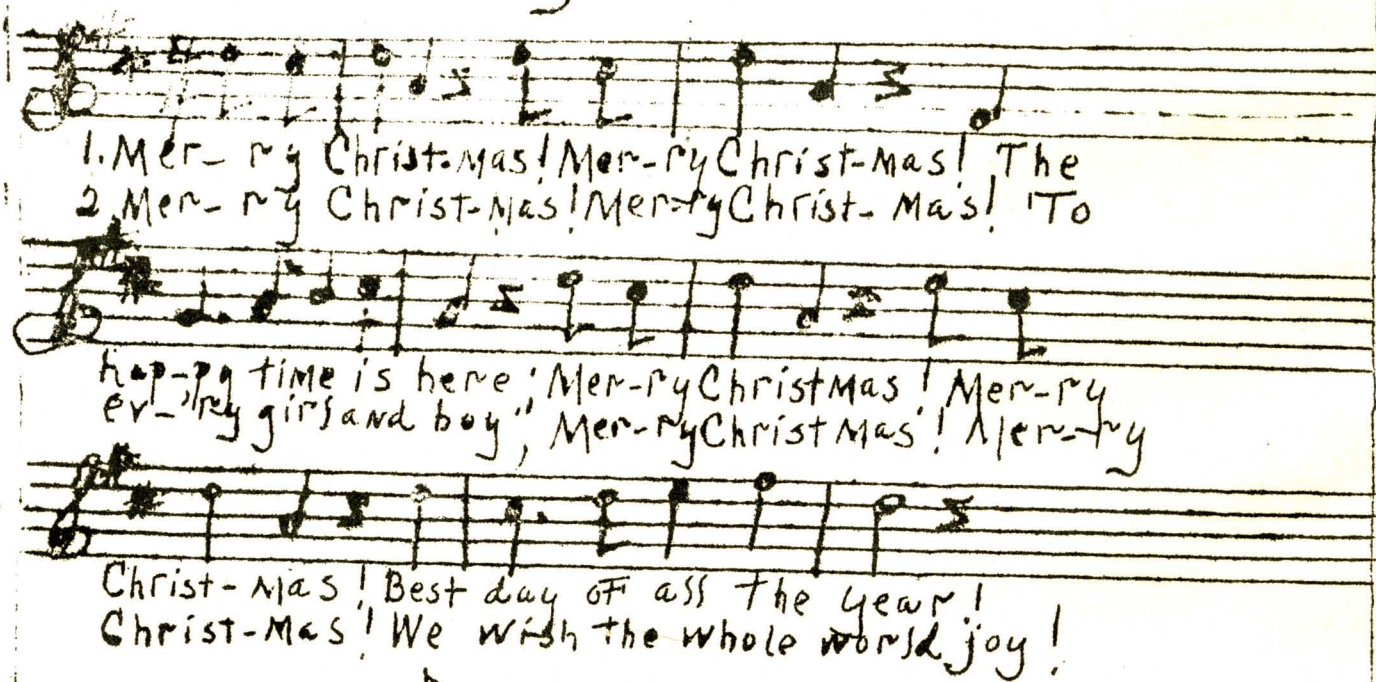 1. Mer- ry Christ-mas! Mer-ry Christ-mas! The
2. Mer- ry Christ-mas! Mer-ry Christ- mas! To
hap-py time is here; Mer-ry Christmas! Mer-ry
ev-'ry girl and boy; Mer-ry Christmas! Mer-ry
Christ-mas! Best day of all the year!
Christ-mas! We wish the whole world joy!